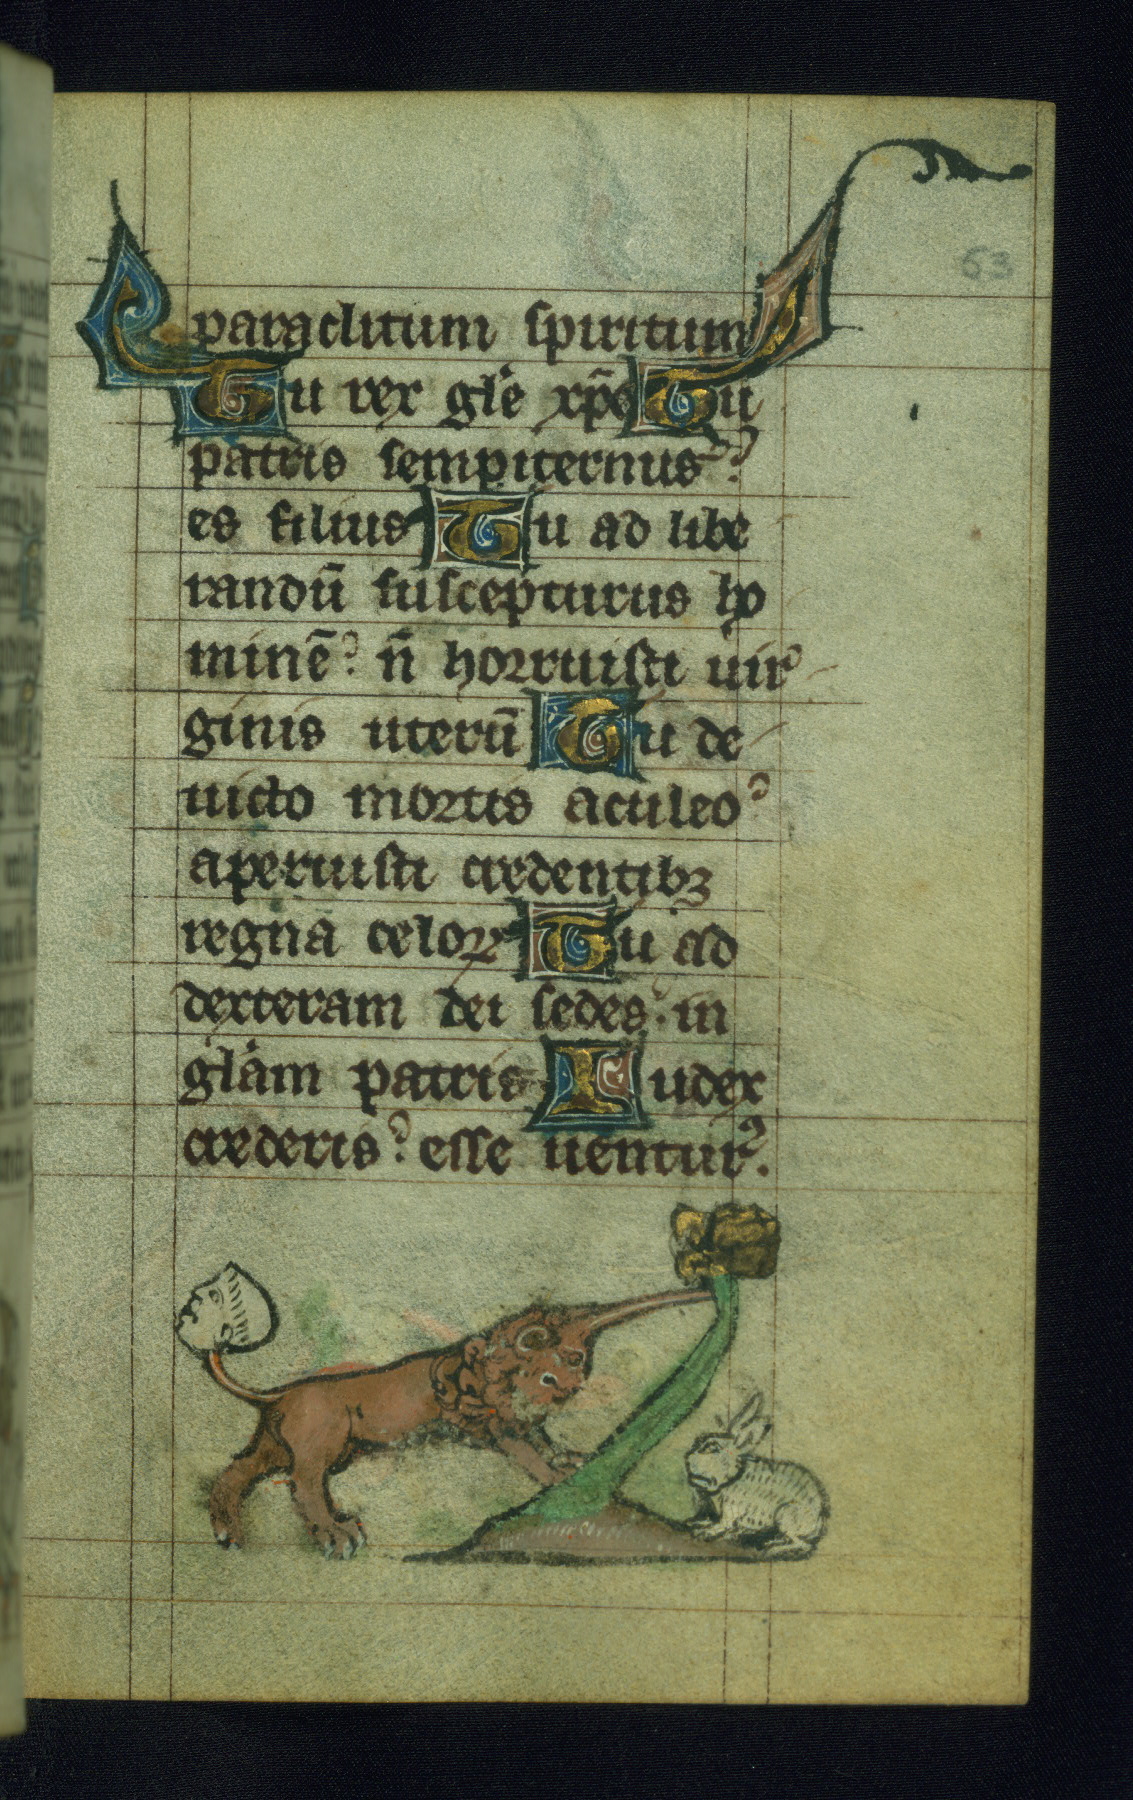 63
paraclitum spiritum
Tu rex gl̃e xp̃e Tu
patris sempiternus
es filius Tu ad libe
randũ suscepturus ho
minẽ. ñ horruisti uir
ginis uterũ Tu de
uicto mortis aculeo
aperuisti credentibꝫ
regna celoꝝ Tu ad
dexteram dei sedes. in
gl̃am patris Iudex
crederis. esse uentur᷒.